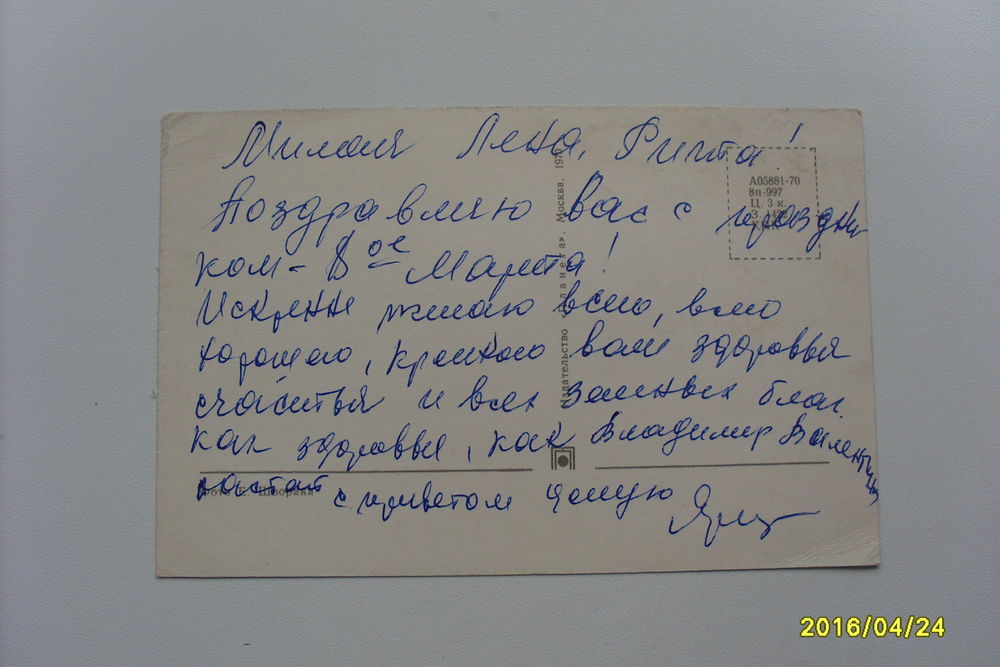 Милая Лена, Рита!
Поздравляю вас с праздни
ком - 8ое Марта!
Искренне желаю всего, всего
хорошего, крепкого вам здоровья
счастья и всех земных благ.
Как здоровье, как Владимир Валентин
с приветом целую
А05881-70
8п-997
Ц. 3 к.
Издательство «Планета». Москва. 1970
Фото Е. Шворака
2016/04/24